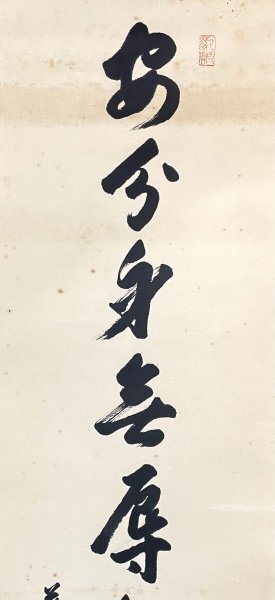 安分身無辱